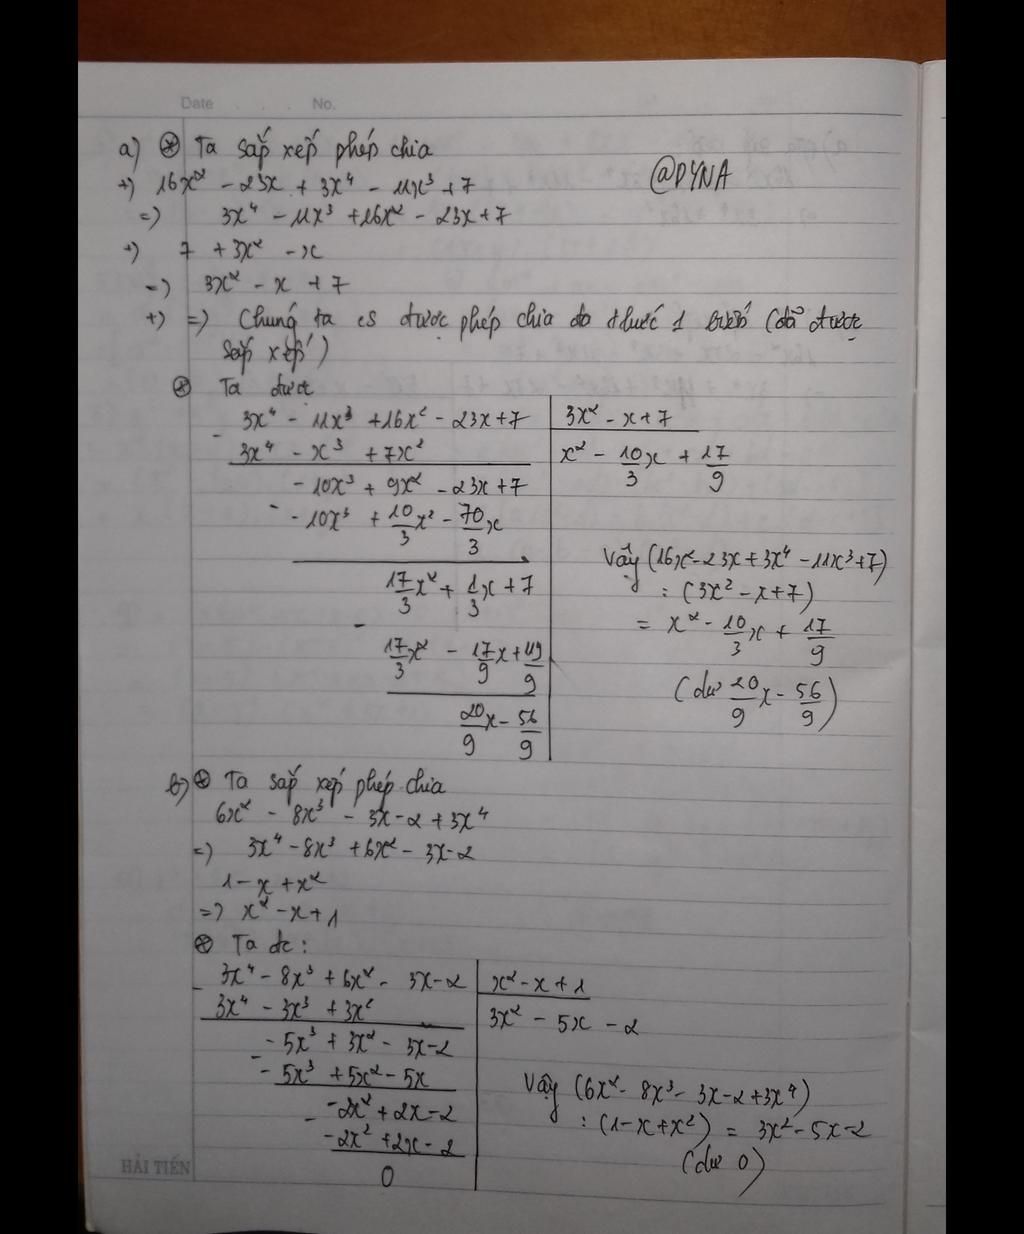 Date . . . No.
a) ⊛ Ta sắp xếp phép chia
@DYNA
+) 16x² - 23x + 3x⁴ - 11x³ + 7
=) 3x⁴ - 11x³ + 16x² - 23x + 7
+) 7 + 3x² - x
=) 3x² - x + 7
+) =) Chúng ta có được phép chia đa thức 1 biến (đã được
sắp xếp)
⊛ Ta được
3x⁴ - 11x³ + 16x² - 23x + 7 | 3x² - x + 7
- 3x⁴ - x³ + 7x² | x² - 10/3 x + 17/9
- 10x³ + 9x² - 23x + 7
- - 10x³ + 10/3 x² - 70/3 x
17/3 x² + 1/3 x + 7
- 17/3 x² - 17/9 x + 119/9
20/9 x - 56/9
Vậy (16x² - 23x + 3x⁴ - 11x³ + 7)
: (3x² - x + 7)
= x² - 10/3 x + 17/9
(dư 20/9 x - 56/9)
b) ⊛ Ta sắp xếp phép chia
6x² - 8x³ - 3x - 2 + 3x⁴
=) 3x⁴ - 8x³ + 6x² - 3x - 2
1 - x + x²
=) x² - x + 1
⊛ Ta đc :
3x⁴ - 8x³ + 6x² - 3x - 2 | x² - x + 1
- 3x⁴ - 3x³ + 3x² | 3x² - 5x - 2
- 5x³ + 3x² - 3x - 2
- - 5x³ + 5x² - 5x
- 2x² + 2x - 2
- - 2x² + 2x - 2
0
Vậy (6x² - 8x³ - 3x - 2 + 3x⁴)
: (1 - x + x²) = 3x² - 5x - 2
(dư 0)
HẢI TIẾN